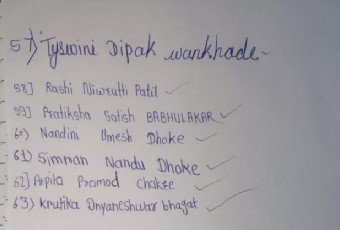 57) Tysevini Dipak wankhade-
58] Rashi Niwrutti Patil
59] Pratiksha Satish BABHULAKAR
60) Nandini Umesh Dhoke
61) Simran Nandu Dhoke
62] Arpita Pramod chakee
63) Krutika Dnyaneshwar bhagat